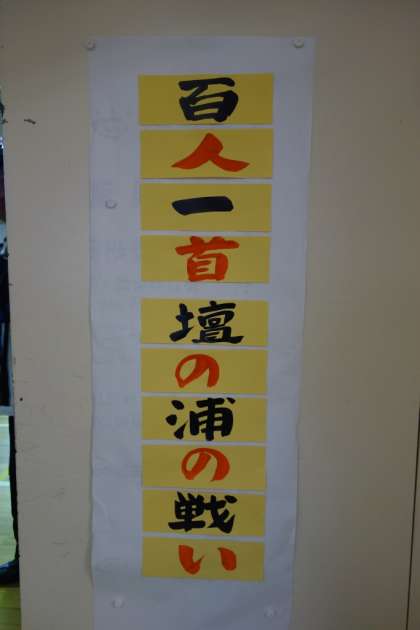 百人一首
壇の浦の戦い